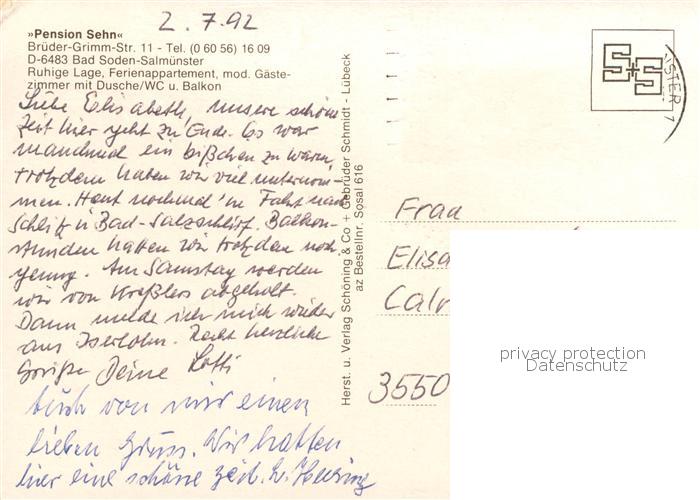 2.7.92
»Pension Sehn«
Brüder-Grimm-Str. 11 - Tel. (0 60 56) 16 09
D-6483 Bad Soden-Salmünster
Ruhige Lage, Ferienappartement, mod. Gäste-
zimmer mit Dusche/WC u. Balkon
Liebe Elisabeth, unsere schöne
Zeit hier geht zu Ende. Es war
manchmal ein bißchen zu warm,
trotzdem haben wir viel unternom-
men. Heut nochmal 'ne Fahrt nach
Schlitz u Bad-Salzschlirf. Balkon-
stunden hatten wir trotzdem noch
genug. Am Samstag werden
wir von Kreßlers abgeholt.
Dann melde ich mich wieder
aus Iserlohn. Recht herzliche
Grüße Deine Lotti
Auch von mir einen
lieben Gruss. Wir hatten
hier eine schöne Zeit.
Herst. u. Verlag Schöning & Co + Gebrüder Schmidt - Lübeck
az Bestellnr. Sosal 616
S+S
STER 1
Frau
Elisa
Calv
3550
privacy protection
Datenschutz